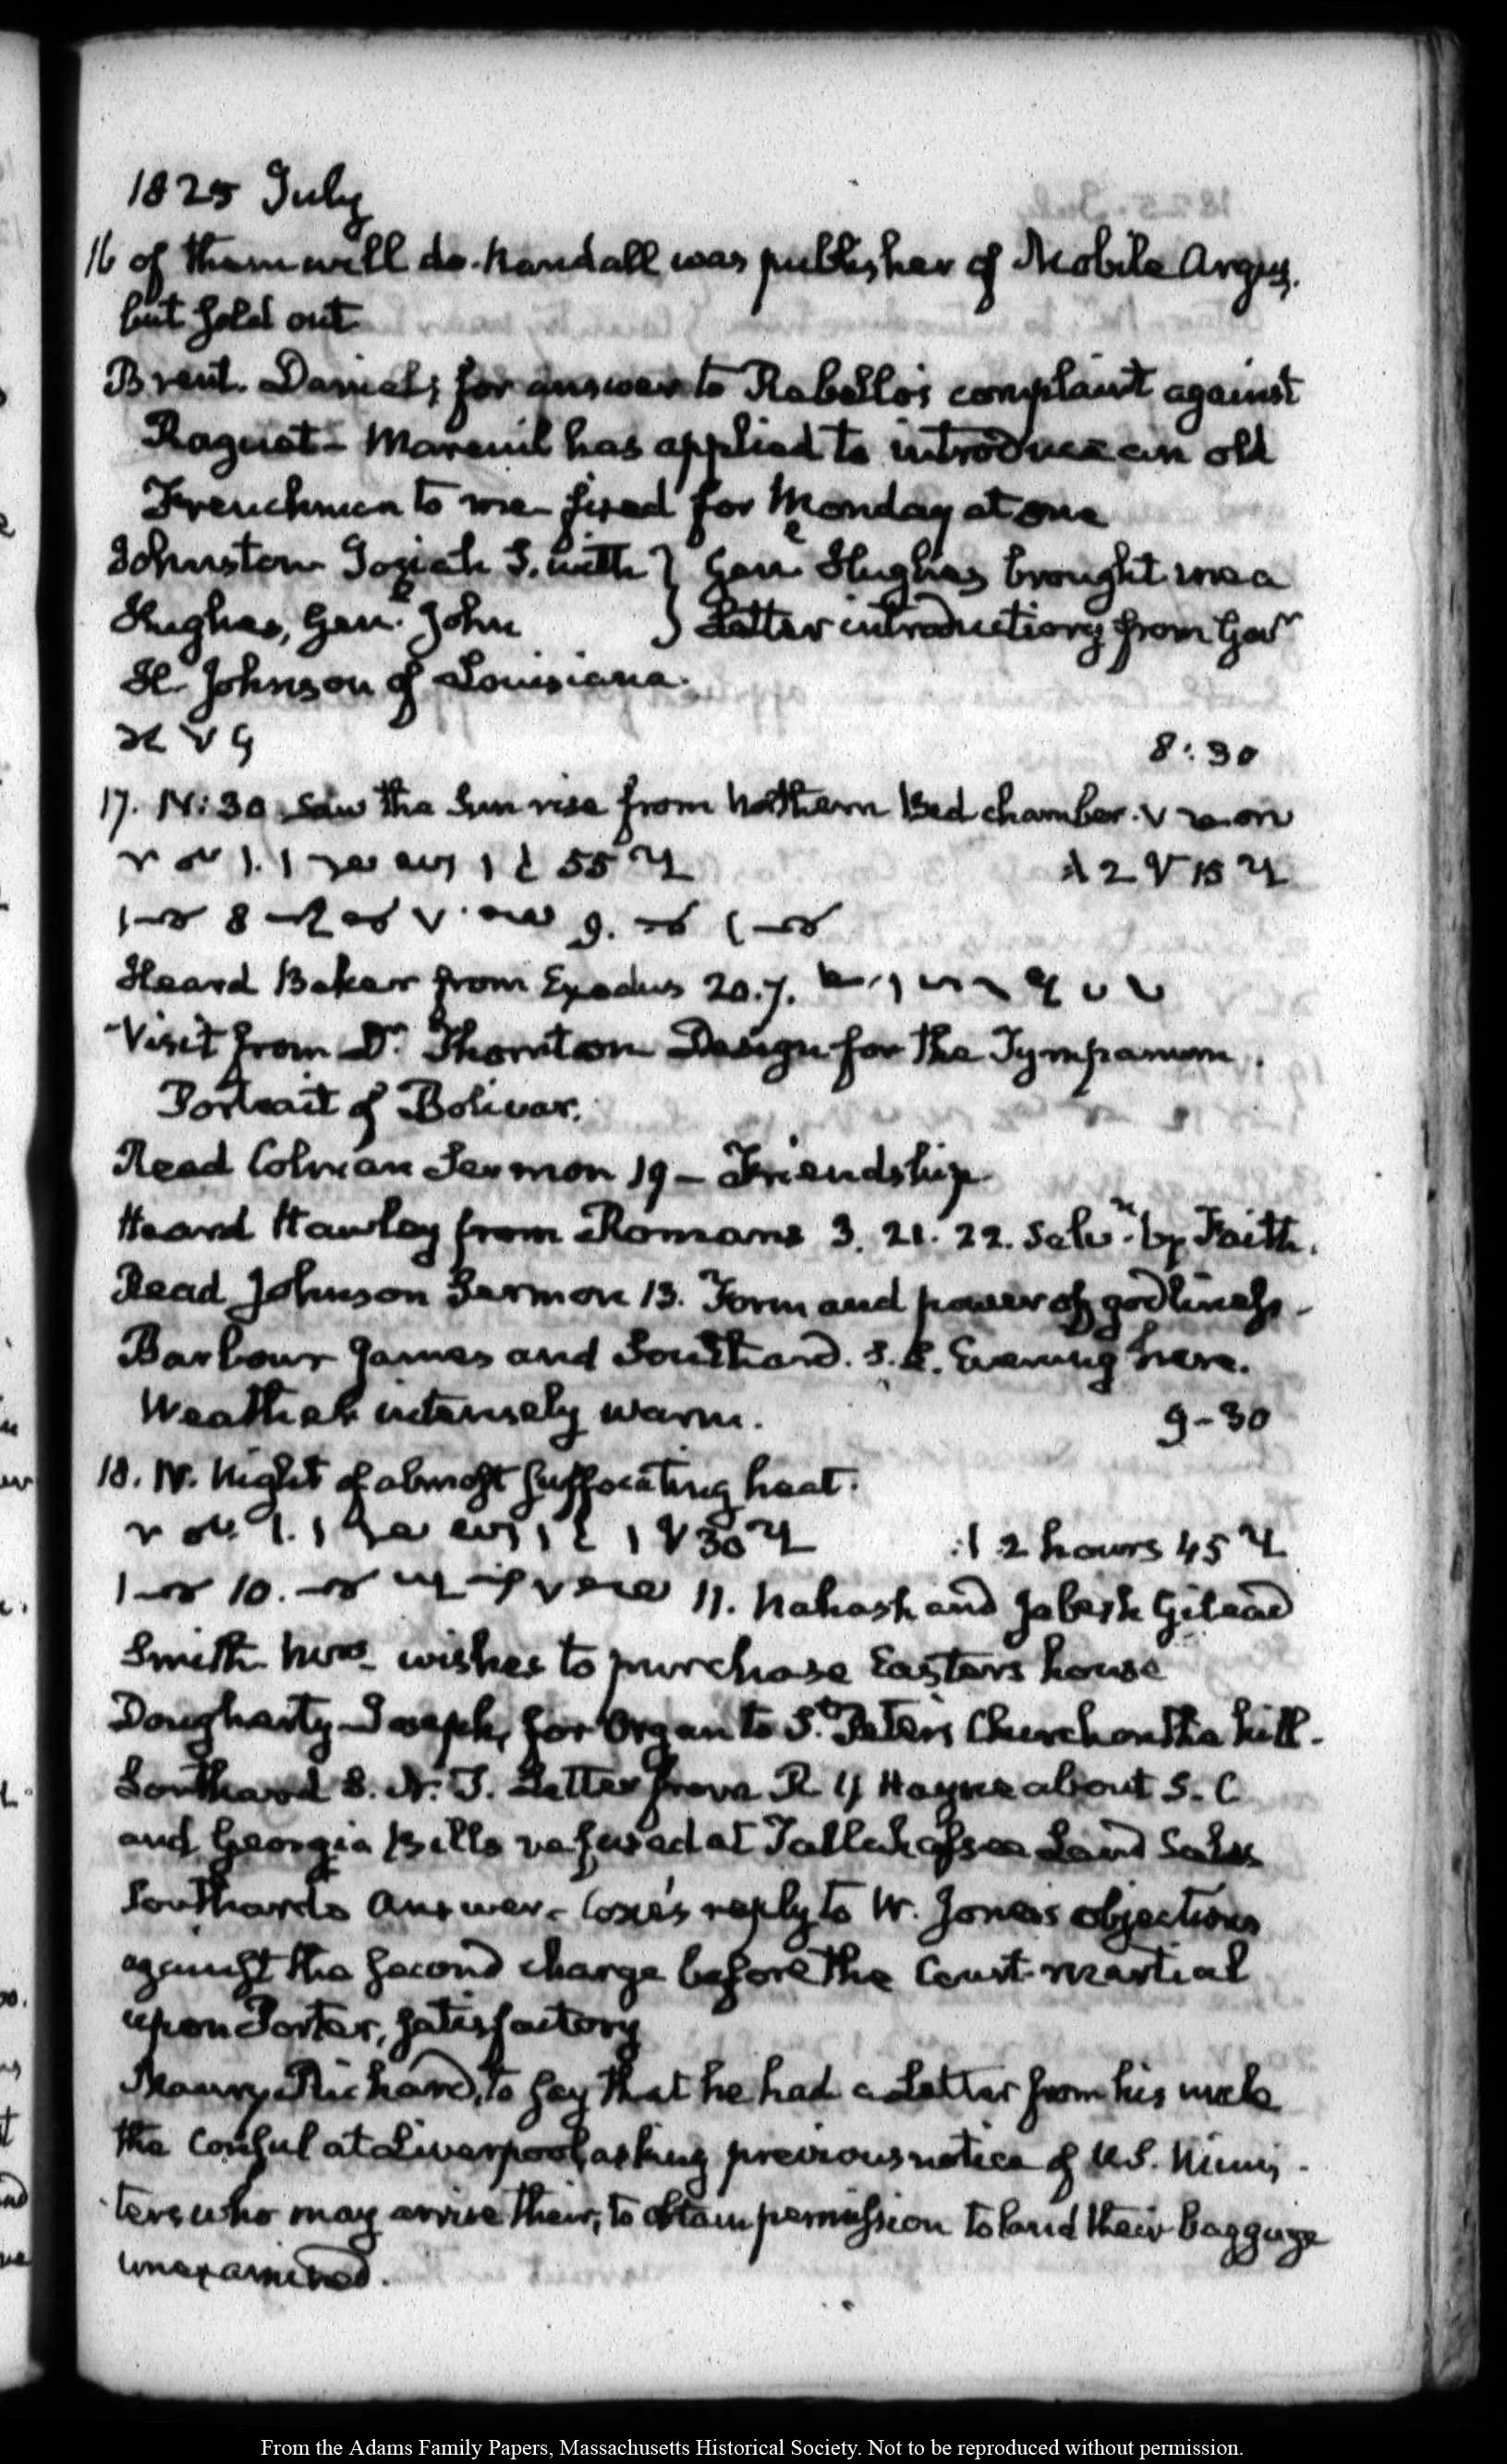 1825 July
16 of them will do. Randall was publisher of Mobile Argus.
but sold out
Brent. Daniel; for answer to Rebello's complaint against
Raguet - Mareuil has applied to introduce an old
Frenchman to me fixed for Monday at one
Johnston Josiah S. with } Genl Hughes brought me a
Hughes, Genl. John } Letter introductory from Govr
H. Johnson of Louisiana.
8:30
17. IV:30 Saw the Sun rise from Northern Bed chamber.
55
2 15
8 9.
Heard Baker from Exodus 20.7.
Visit from Dr. Thornton Design for the Tympanum.
Portrait of Bolivar.
Read Colman Sermon 19 - Friendship
Heard Hawley from Romans 3. 21. 22. Salvn. by Faith.
Read Johnson Sermon 13. Form and power of godliness -
Barbour James and Southard. S. L. Evening here.
Weather intensely warm. 9-30
18. IV. Night of almost suffocating heat.
30 2 hours 45
10. 11. Nahash and Jabesh Gilead
Smith Mrs - wishes to purchase Easters house
Dougherty Joseph, for Organ to St. Peters Church on the hill -
Southard S. Letter from R Y Hayne about S. C
and Georgia Bills refused at Tallahassee Land Sales
Southards Answer - Coxe's reply to W. Jones's objections
against the second charge before the Court-martial
upon Porter, satisfactory
Maury Richard, to say that he had a Letter from his uncle
the Consul at Liverpool asking previous notice of U.S. Minis-
ters who may arrive their, to obtain permission to land their baggage
unexamined.
From the Adams Family Papers, Massachusetts Historical Society. Not to be reproduced without permission.